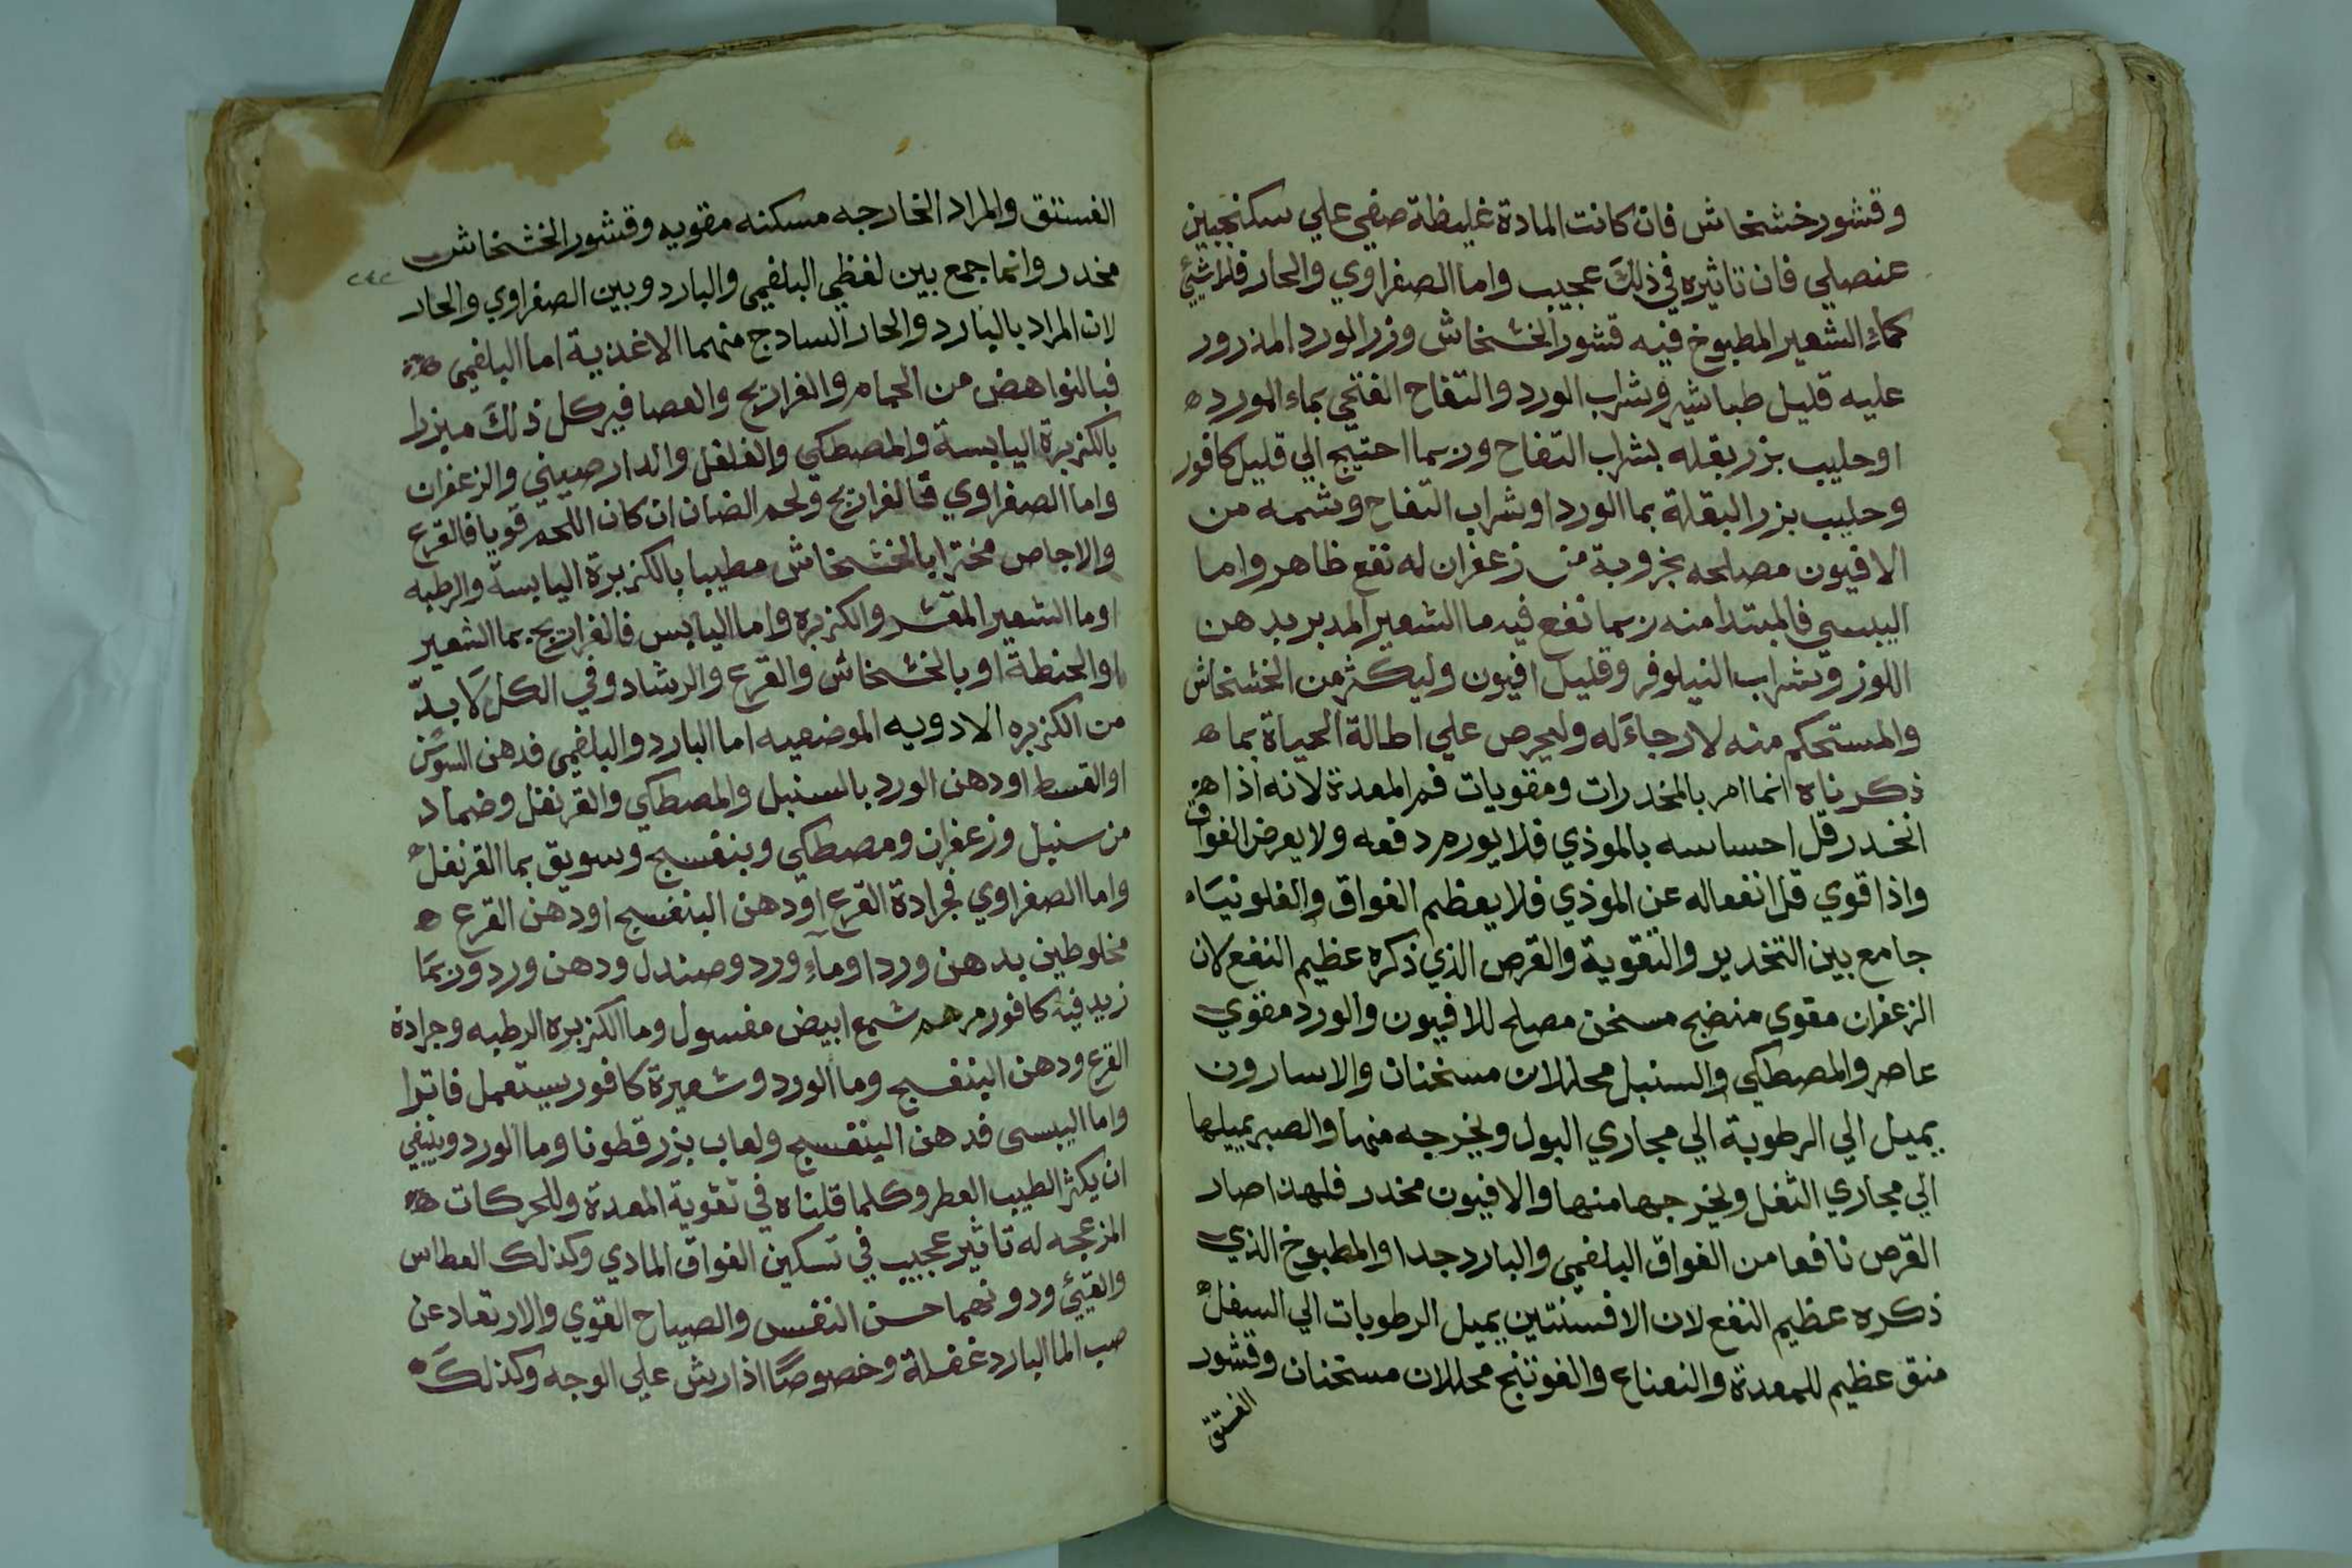 وقشور خشخاش فان كانت المادة غليظة صفي علي سكنجبين
عنصلي فان تاثيره في ذلك عجيب واما الصفراوي والحار فلا شيئ
كماء الشعير المطبوخ فيه قشور الخشخاش وزر الورد المذرور
عليه قليل طباشير وشراب الورد والتفاح الفتحي بماء الورد ه
او حليب بزر بقله بشراب التفاح وربما احتيج الي قليل كافور
وحليب بزر البقلة بما الورد او شراب التفاح وشمه من
الافيون مصلحه بخروبة من زعفران له نفع ظاهر واما
اليبسي فالمبتدا منه ربما نفع فيه ما الشعير المدبر بدهن
اللوز وشراب النيلوفر وقليل افيون وليكثر من الخشخاش
والمستحكم منه لا رجاء له وليحرص علي اطالة الحياة بما ه
ذكرناه انما امر بالمخدرات ومقويات فم المعدة لانه اذا هو
انخدر قل احساسه بالموذي فلا يورم دفعه ولا يعرض الفواق
واذا قوي قل انفعاله عن الموذي فلا يعظم الفواق والفلونيَاء
جامع بين التخدير والتقوية والقرص الذي ذكره عظيم النفع لان
الزعفران مقوي منضج مسخن مصلح للافيون والورد مقوي
عاصر والمصطكي والسنبل محللان مسخنان والاسارون
يميل الي الرطوبة الي مجاري البول ويخرجه منها والصبر يميلها
الي مجاري الثفل ويخرجها منها والافيون مخدر فلهذا صار
القرص نافعا من الفواق البلغمي والبارد جدا والمطبوخ الذي
ذكره عظيم النفع لان الافسنتين يميل الرطوبات الي السفل ه
منق عظيم للمعدة والنعناع والفوتنج محللان مسخنان وقشور
الفستق
الفستق والمراد الخارجه مسكنه مقويه وقشور الخشخاش
مخدر وانما جمع بين لفظي البلغمي والبارد وبين الصفراوي والحار
٢٤٢
لان المراد بالبارد والحار السادج منهما الاغذية اما البلغمي ه
فبالنواهض من الحمام والفراريج والعصافير كل ذلك مبزرا
بالكزبرة اليابسة والمصطكي والفلفل والدارصيني والزعفران
واما الصفراوي فالفراريج ولحم الضان ان كان اللحم قويا فالقرع
والاجاص مخترا بالخشخاش مطيبا بالكزبرة اليابسة والرطبه
اوما الشعير المقشر والكزبره واما اليابس فالفراريج بما الشعير
او الحنطة او بالخشخاش والقرع والرشاد وفي الكل لا بدّ
من الكزبره الادويه الموضعيه اما البارد والبلغمي فدهن السوسن
او القسط او دهن الورد بالسنبل والمصطكي والقرنفل وضماد
من سنبل وزعفران ومصطكي وبنفسج وسويق بما القرنفل ه
واما الصفراوي فجرادة القرع او دهن البنفسج او دهن القرع ه
مخلوطين بدهن ورد او ماء ورد وصندل ودهن ورد وربما
زيد فيه كافور مرهم شمع ابيض مغسول وما الكزبره الرطبه وجرادة
القرع ودهن البنفسج وما الورد وشعيرة كافور يستعمل فاترا
واما اليبسي فدهن البنفسج ولعاب بزر قطونا وما الورد وينبغي
ان يكثر الطيب العطر وكلما قلناه في تقوية المعدة وللحركات ه
المزعجه له تاثير عجيب في تسكين الفواق المادي وكذلك العطاس
والقيئ ودونهما حسن النفس والصياح القوي والارتعاد عن
صب الما البارد غفلة وخصوصًا اذا رش علي الوجه وكذلك ه